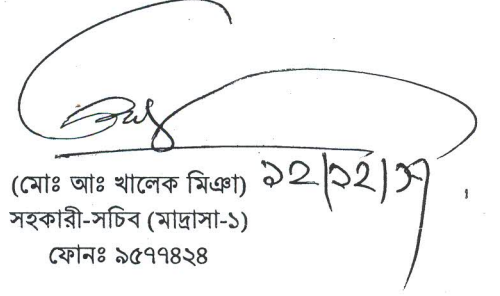 (মোঃ আঃ খালেক মিঞা) ১২/১২/১৭
সহকারী-সচিব (মাদ্রাসা-১)
ফোনঃ ৯৫৭৭৪২৪